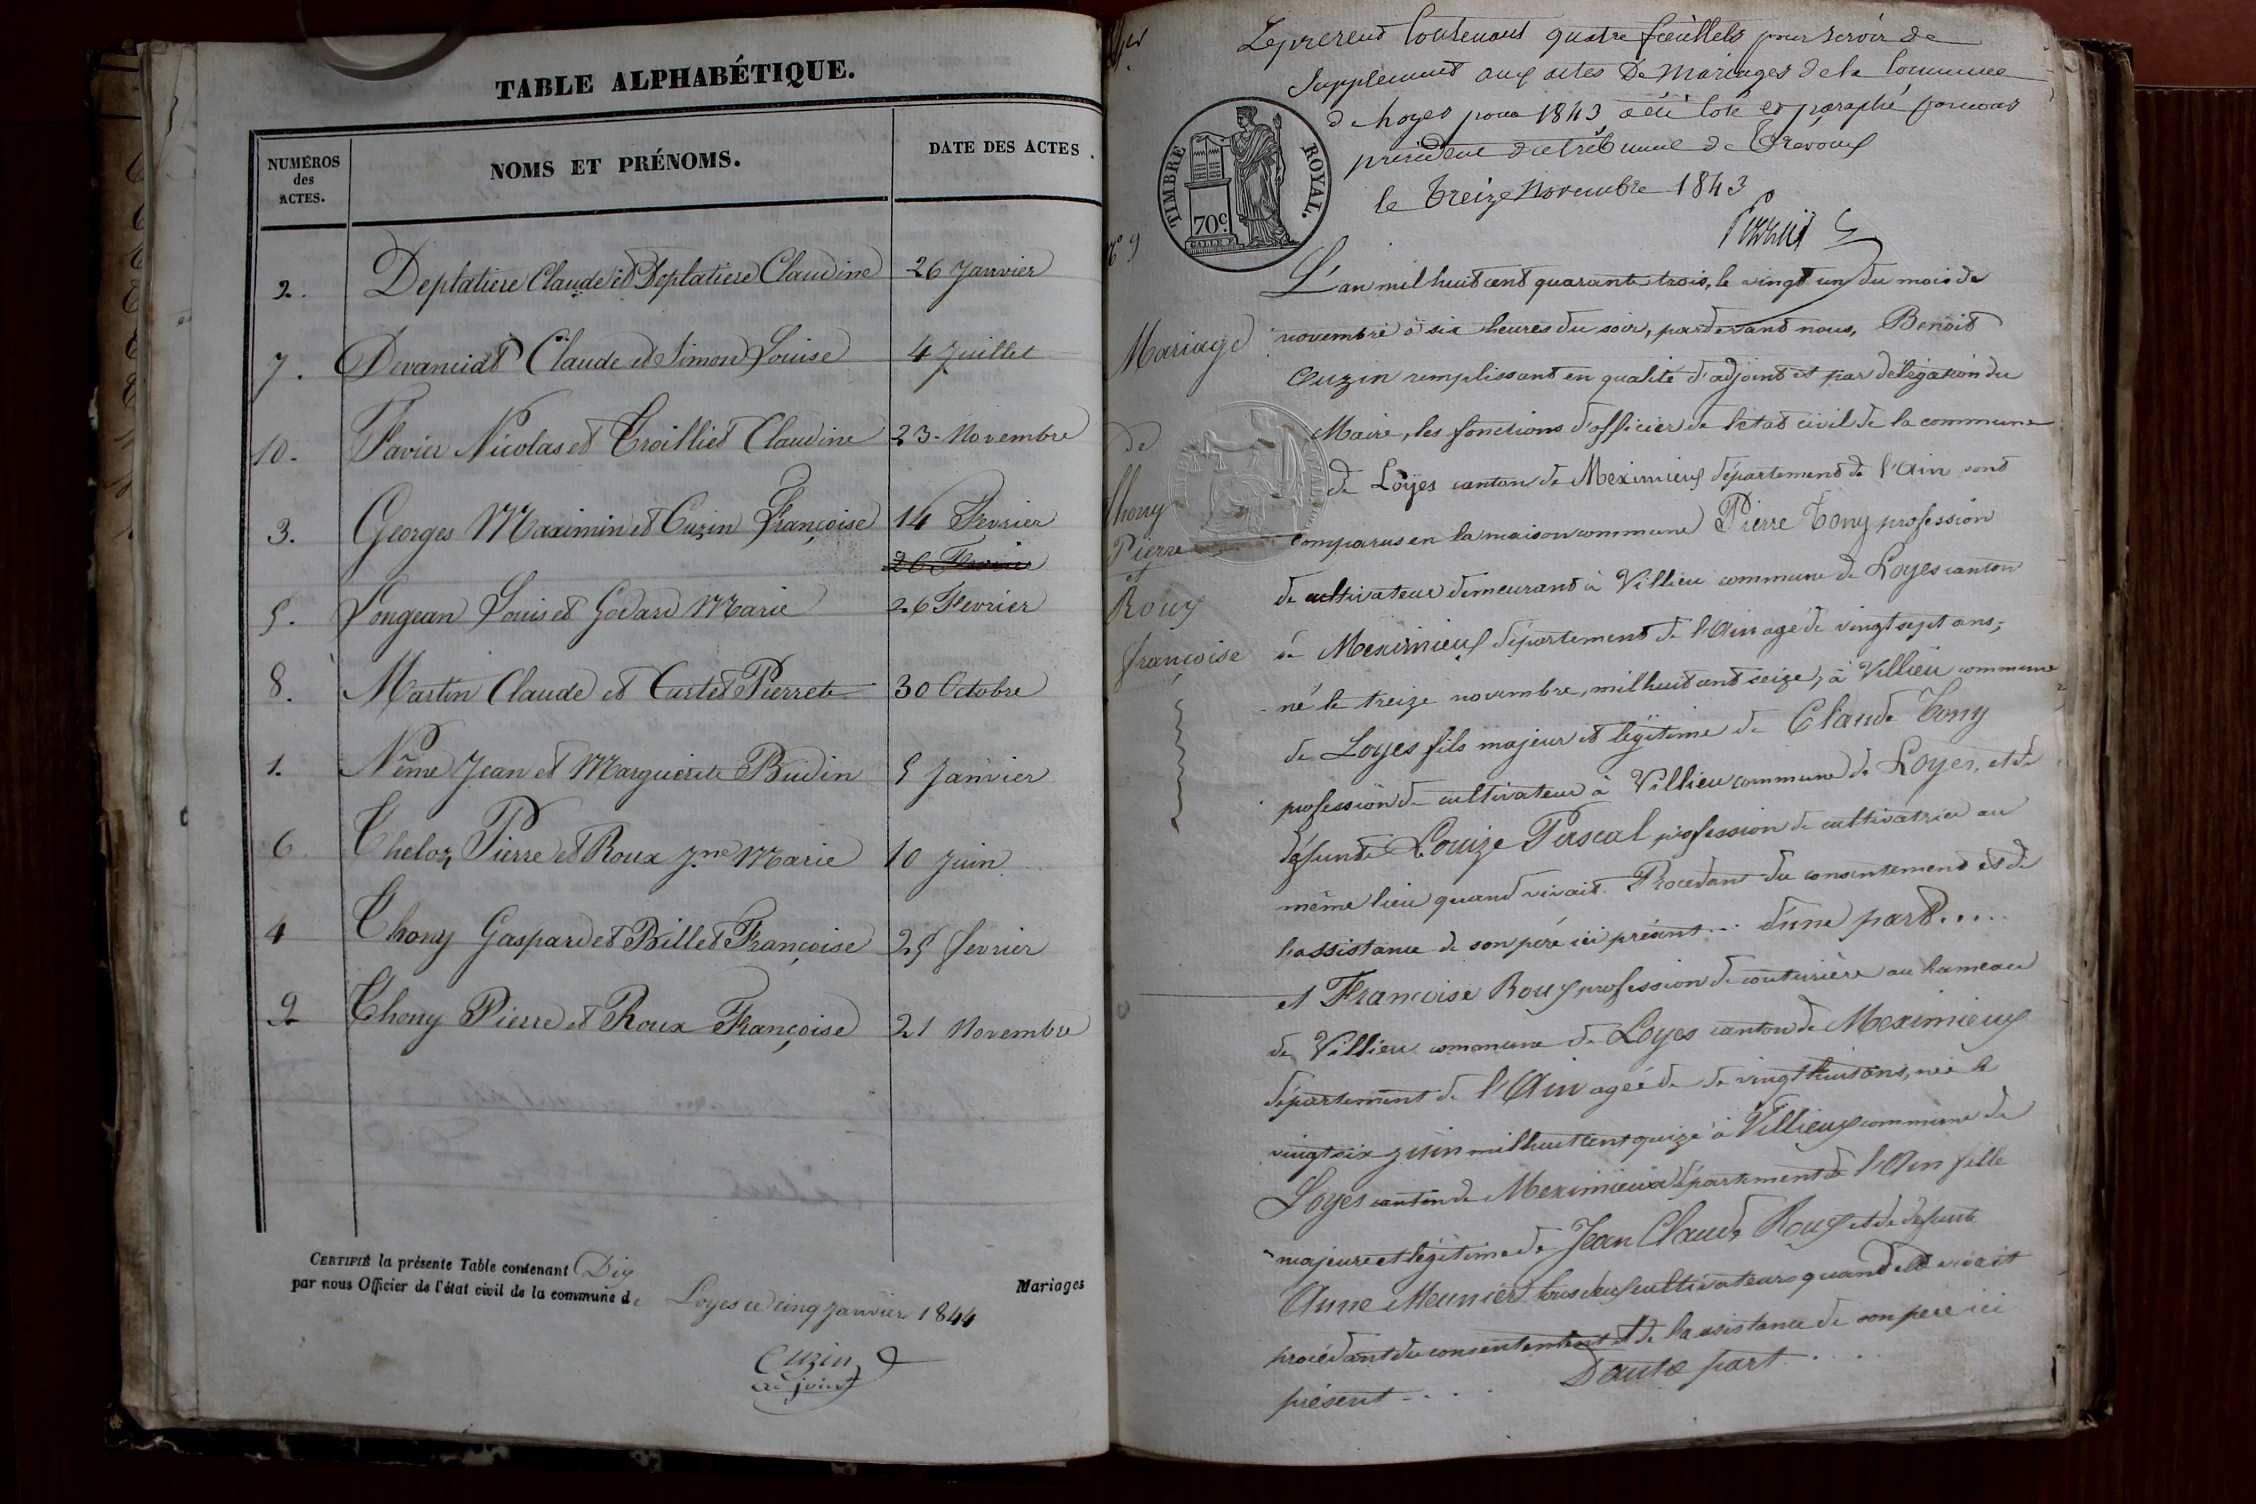 TABLE ALPHABÉTIQUE.
NUMÉROS des ACTES. NOMS ET PRÉNOMS. DATE DES ACTES.
2. Deplatiere Claude et Deplatiere Claudine 26 Janvier
7. Devanciat Claude et Simon Louise 4 Juillet
10. Favier Nicolas et Troilliet Claudine 23 Novembre
3. Georges Maximin et Cuzin Françoise 14 Fevrier
26 Fevrier
5. Longean Louis et Godard Marie 26 Fevrier
8. Martin Claude et Curtet Pierrete 30 Octobre
1. Nême Jean et Marguerite Budin 5 Janvier
6. Theloz Pierre et Roux Jne Marie 10 Juin
4 Thony Gaspard et Billet Françoise 25 fevrier
9 Thony Pierre et Roux Françoise 21 Novembre
CERTIFIÉ la présente Table contenant Dix Mariages
par nous Officier de l'état civil de la commune de Loyes ce cinq janvier 1844
Cuzin
adjoint
Le présent contenant quatre feuillets pour servir de
Supplement aux actes de Mariages de la Commune
de Loyes pour 1843 a été coté et paraphé par nous
président du tribunal de Trévoux
le treize Novembre 1843
TIMBRE ROYAL.
70c.
No 9
Mariage
de
Thony
Pierre
et
Roux
françoise
L'an mil huit cent quarante trois, le vingt un du mois de
novembre à six heures du soir, pardevant nous, Benoit
Cuzin remplissant en qualité d'adjoint et par délégation du
Maire, les fonctions d'officier de l'état civil de la commune
de Loyes canton de Meximieux département de l'Ain sont
comparus en la maison commune Pierre Tony profession
de cultivateur demeurant à Villieu commune de Loyes canton
de Meximieux département de l'Ain agé de vingt sept ans,
né le treize novembre, mil huit cent seize, à Villieu commune
de Loyes fils majeur et légitime de Claude Tony
profession de cultivateur à Villieu commune de Loyes, et de
défunte Louize Pascal profession de cultivatrice au
même lieu quand vivait. Procédant du consentement et de
l'assistance de son père ici présent... d'une part....
et Françoise Roux profession de couturière au hameau
de Villieu commune de Loyes canton de Meximieux
département de l'Ain agée de de vingt huit ans, née le
vingt six juin mil huit cent quize à Villieux commune de
Loyes canton de Meximieux département de l'Ain fille
majeure et légitime de Jean Claude Roux et de defunte
Anne Meunier tous deux cultivateurs quand elle vivait
procédant du consentement et de la assistance de son pere ici
présent.... D'autre part....